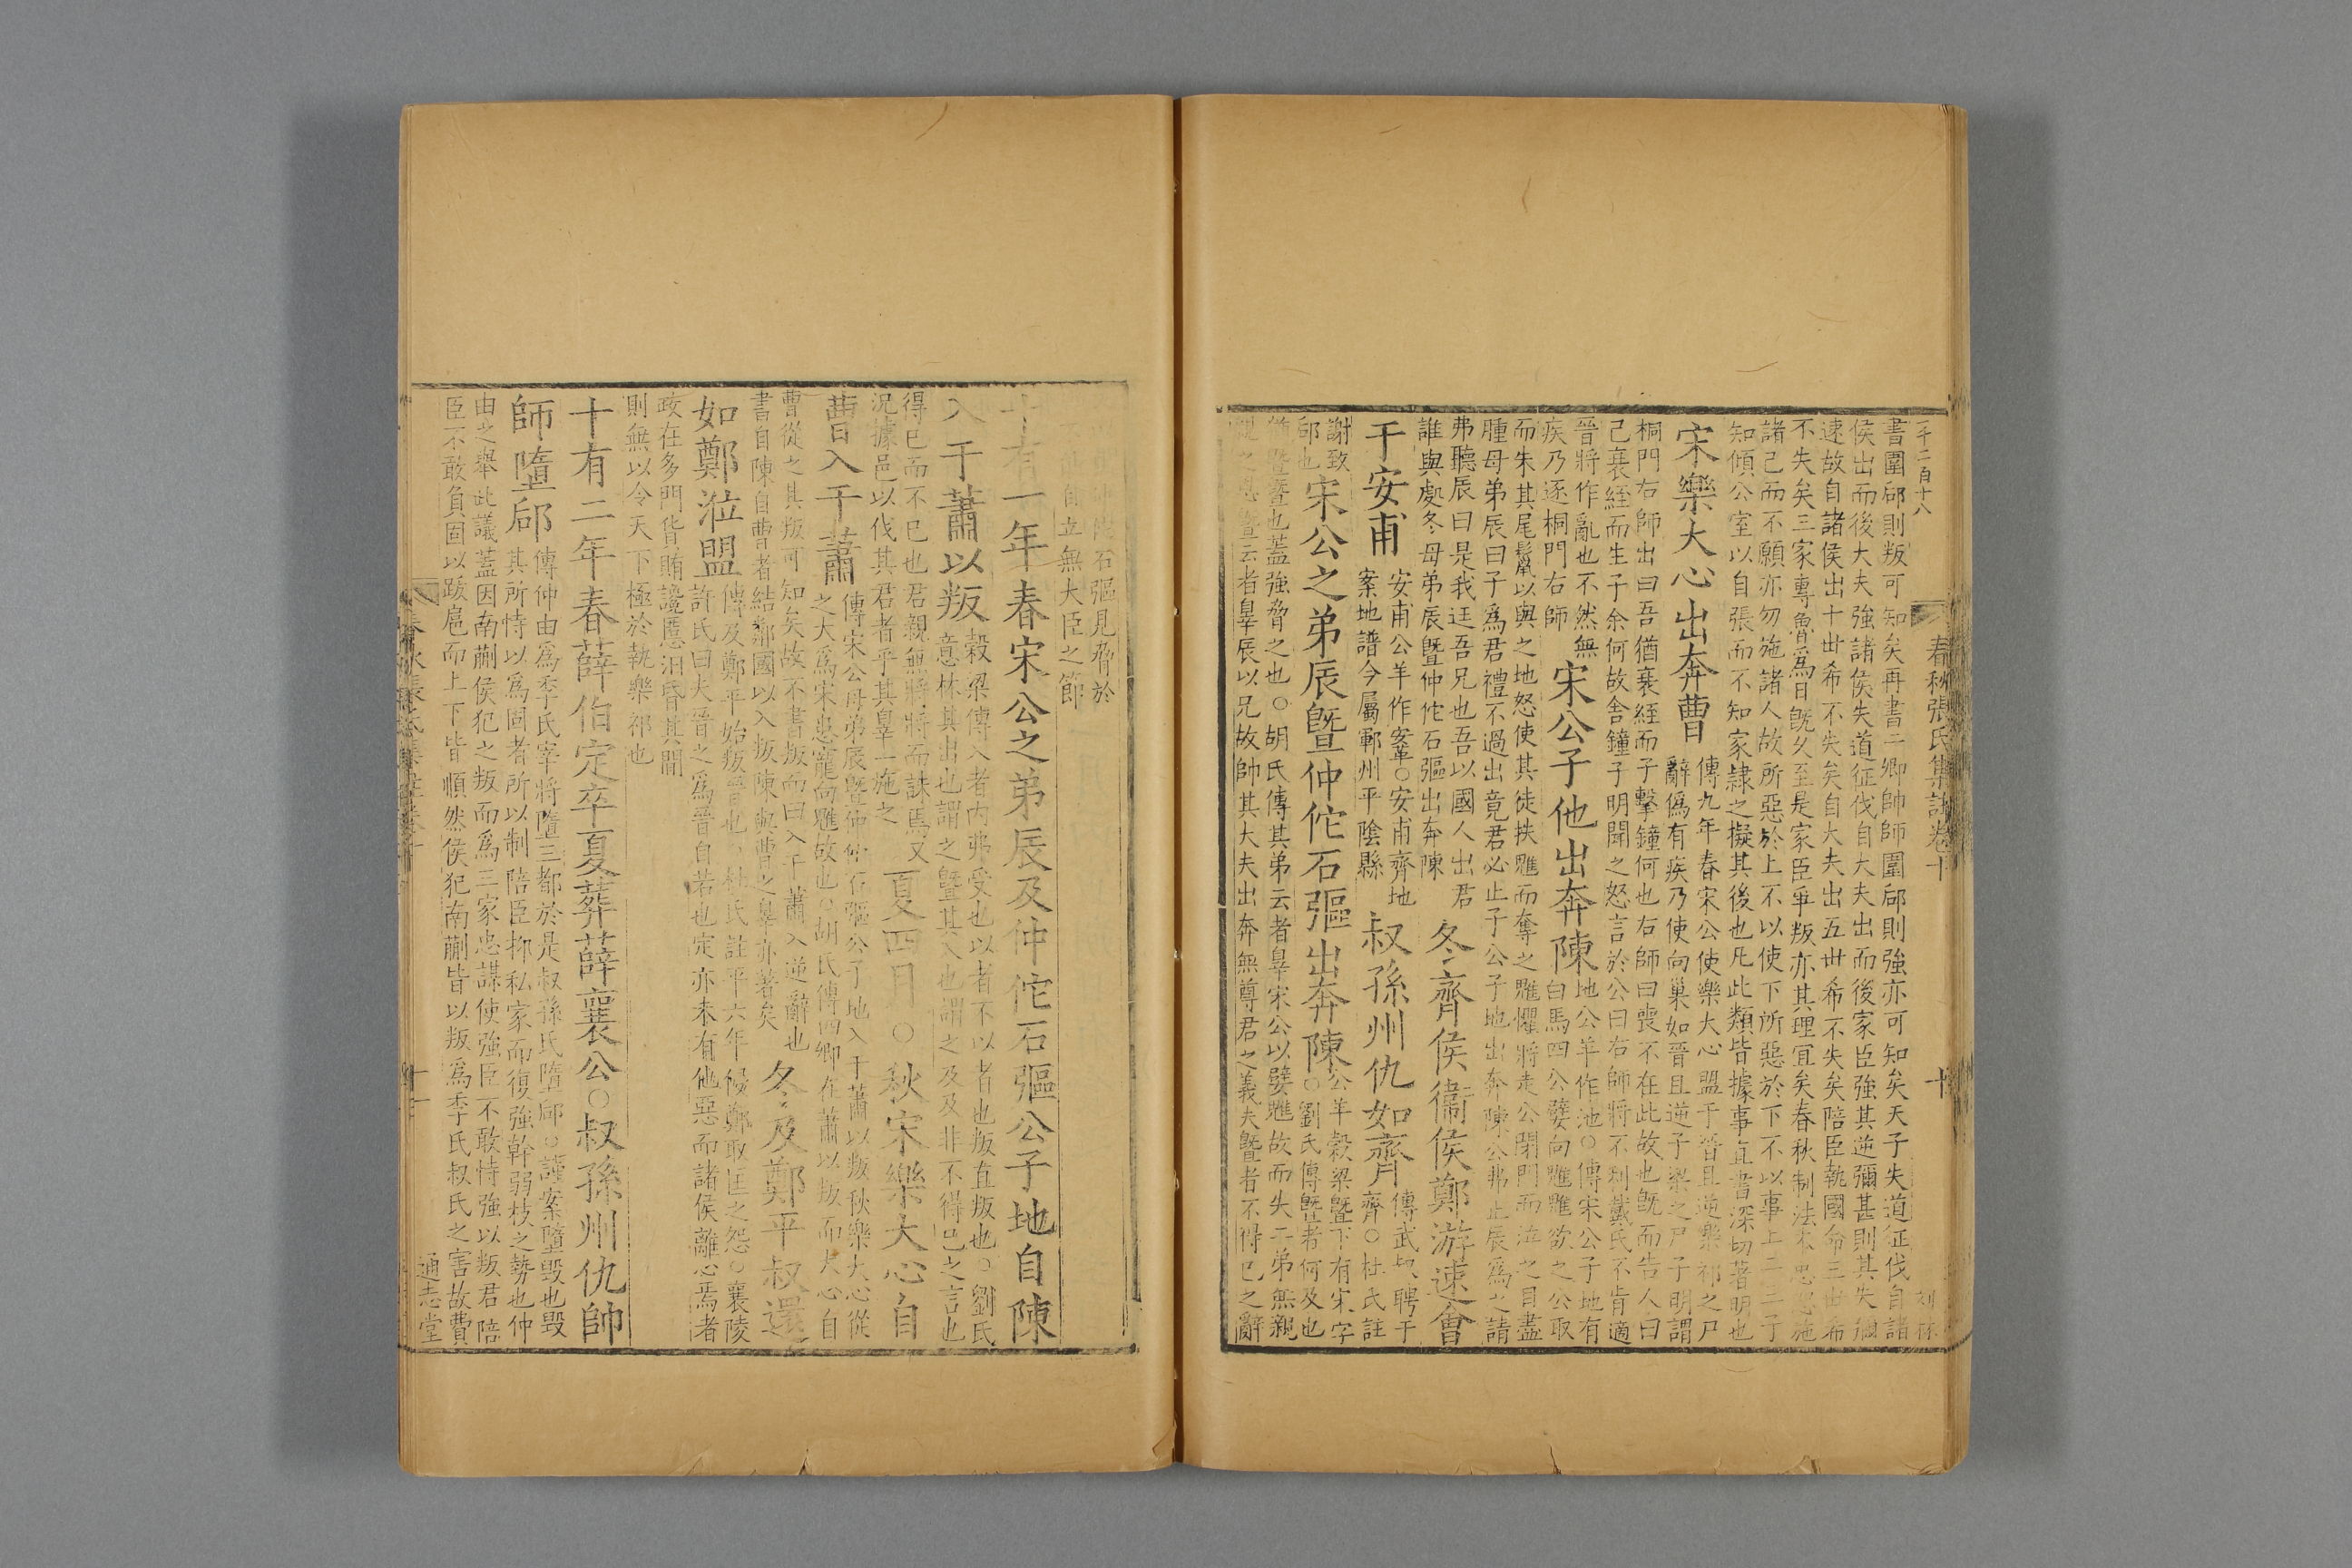 春秋張氏集註卷十 十
書圍郈則叛可知矣再書二卿帥師圍郈則強亦可知矣天子失道征伐自諸
侯出而後大夫強諸侯失道征伐自大夫出而後家臣強其逆彌甚則其失彌
逮故自諸侯出十世希不失矣自大夫出五世希不失矣陪臣執國命三世希
不失矣三家專魯爲日旣久至是家臣爭叛亦其理宜矣春秋制法本忠恕施
諸己而不願亦勿施諸人故所惡於上不以使下所惡於下不以事上二三子
知傾公室以自張而不知家隸之擬其後也凡此類皆據事直書深切著明也
宋樂大心出奔曹
傳九年春宋公使樂大心盟于晉且逆樂祁之尸
辭僞有疾乃使向巢如晉且逆子梁之尸子明謂
桐門右師出曰吾猶衰絰而子擊鐘何也右師曰喪不在此故也旣而告人曰
己衰絰而生子余何故舍鐘子明聞之怒言於公曰右師將不利戴氏不肯適
晉將作亂也不然無
疾乃逐桐門右師
宋公子他出奔陳
地公羊作池○傳宋公子地有
白馬四公嬖向魋魋欲之公取
而朱其尾鬛以與之地怒使其徒抶魋而奪之魋懼將走公閉門而泣之目盡
腫母弟辰曰子爲君禮不過出竟君必止子公子地出奔陳公弗止辰爲之請
弗聽辰曰是我迋吾兄也吾以國人出君
誰與處冬母弟辰暨仲佗石彄出奔陳
冬齊侯衞侯鄭游速會
于安甫
安甫公羊作鞌○安甫齊地
案地譜今屬鄆州平陰縣
叔孫州仇如齊
傳武叔聘于
齊○杜氏註
謝致
郈也
宋公之弟辰暨仲佗石彄出奔陳
公羊穀梁暨下有宋字
○劉氏傳暨者何及也
猶暨暨也蓋強脅之也○胡氏傳其弟云者辠宋公以嬖魋故而失二弟無親
親之恩暨云者辠辰以兄故帥其大夫出奔無尊君之義夫暨者不得已之辭
石彄見脅於
自立無大臣之節
十有一年春宋公之弟辰及仲佗石彄公子地自陳
入于蕭以叛
穀梁傳入者內弗受也以者不以者也叛直叛也○劉氏
意林其出也謂之暨其入也謂之及及非不得已之言也
得已而不已也君親無將將而誅焉又
況據邑以伐其君者乎其辠一施之
夏四月○秋宋樂大心自
曹入于蕭
傳宋公母弟辰暨仲佗石彄公子地入于蕭以叛秋樂大心從
之大爲宋患寵向魋故也○胡氏傳四卿在蕭以叛而大心自
曹從之其叛可知矣故不書叛而曰入于蕭入逆辭也
書自陳自曹者結鄰國以入叛陳與曹之辠亦著矣
冬及鄭平叔還
如鄭涖盟
傳及鄭平始叛晉也○杜氏註平六年侵鄭取匡之怨○襄陵
許氏曰夫晉之爲晉自若也定亦未有他惡而諸侯離心焉者
政在多門貨賄讒慝汨昏其間
則無以令天下極於執樂祁也
十有二年春薛伯定卒夏葬薛襄公○叔孫州仇帥
師墮郈
傳仲由爲季氏宰將墮三都於是叔孫氏墮郈○謹案墮毀也毀
其所恃以爲固者所以制陪臣抑私家而復強幹弱枝之勢也仲
由之舉此議蓋因南蒯侯犯之叛而爲三家忠謀使強臣不敢恃強以叛君陪
臣不敢負固以跋扈而上下皆順然侯犯南蒯皆以叛爲季氏叔氏之害故費
通志堂